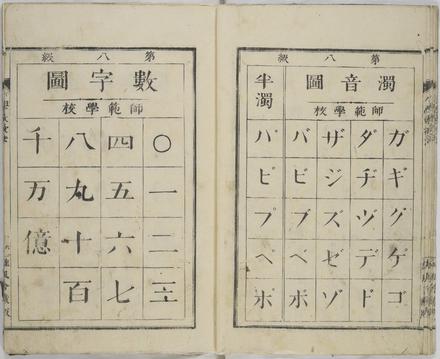 第八級
濁音圖
師範學校
ガギグゲゴ
ダヂヅデド
ザジズゼゾ
バビブベボ
半濁
パピプペポ
第八級
數字圖
師範學校
〇一二三
四五六七
八九十百
千万億